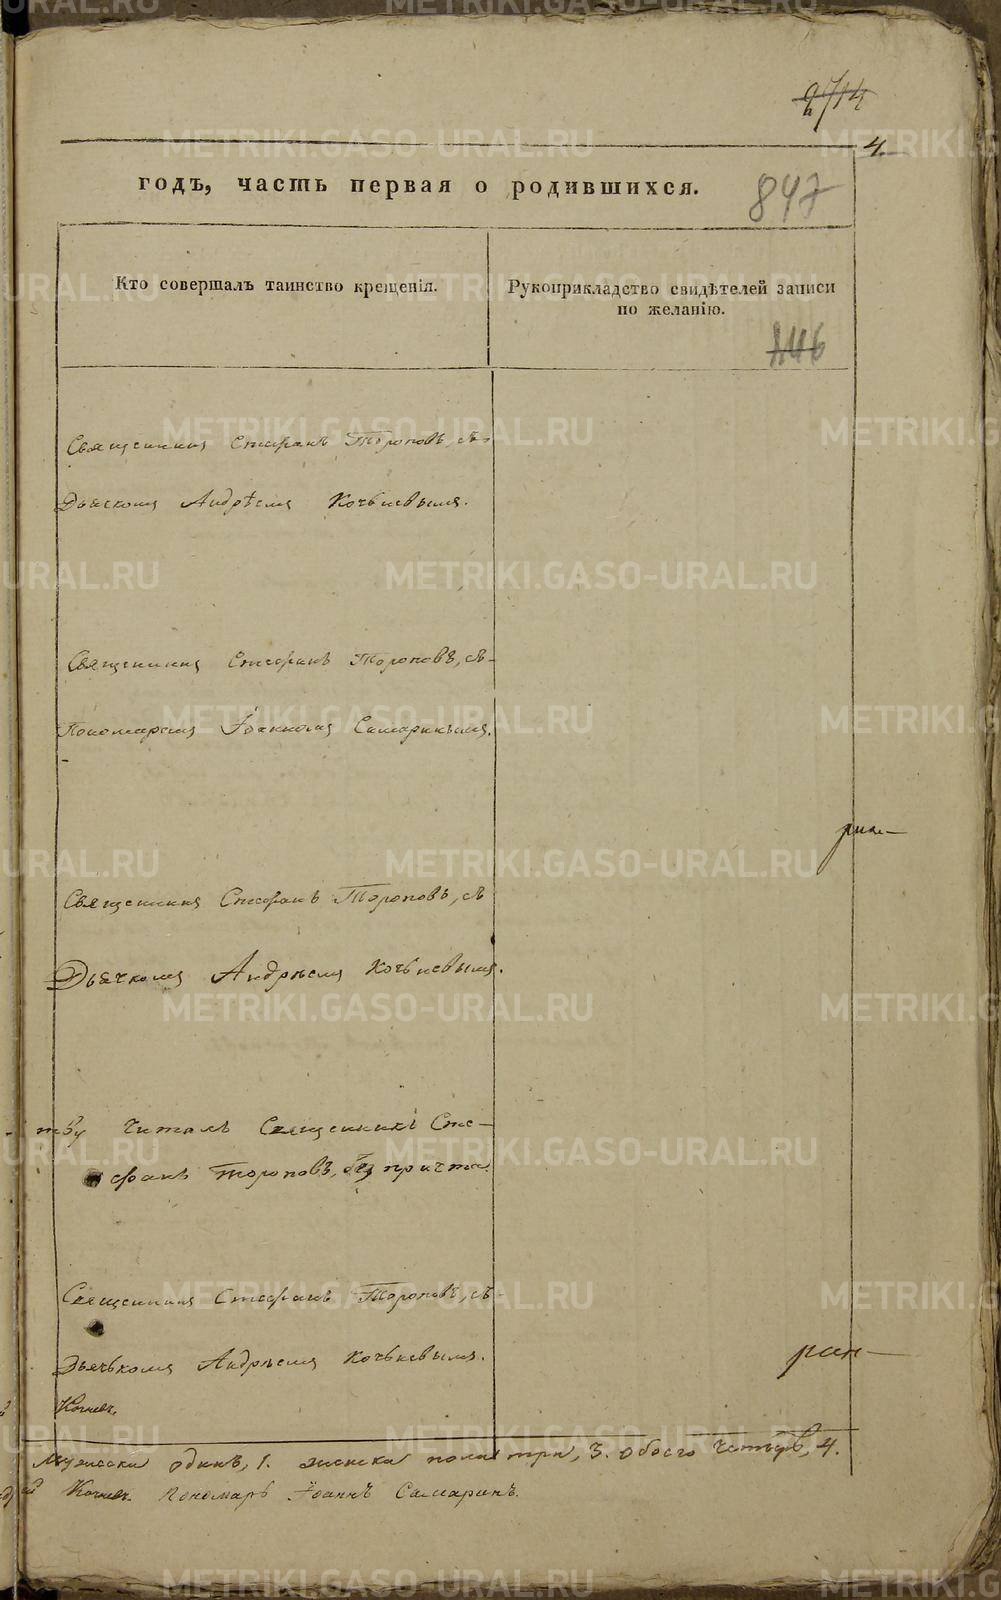 2714
4.
годъ, часть первая о родившихся.
847
Кто совершалъ таинство крещенія.
Рукоприкладство свидѣтелей записи
по желанію.
Священникъ Стефанъ Тороповъ, съ
Дьячкомъ Андрѣемъ Кочьневымъ.
Священникъ Стефанъ Тороповъ, съ
Пономаремъ Іоанномъ Самаринымъ.
Священникъ Стефанъ Тороповъ, съ
Дьячкомъ Андрѣемъ Кочьневымъ.
читалъ Священникъ Сте-
фанъ Тороповъ, безъ причта.
Священникъ Стефанъ Тороповъ, съ
Дьячькомъ Андрѣемъ Кочьневымъ.
Кочнев.
Мужеска одинъ, 1. женска пола три, 3. обоего четыре, 4.
Кочнев. Пономарь Іоаннъ Самаринъ.
METRIKI.GASO-URAL.RU